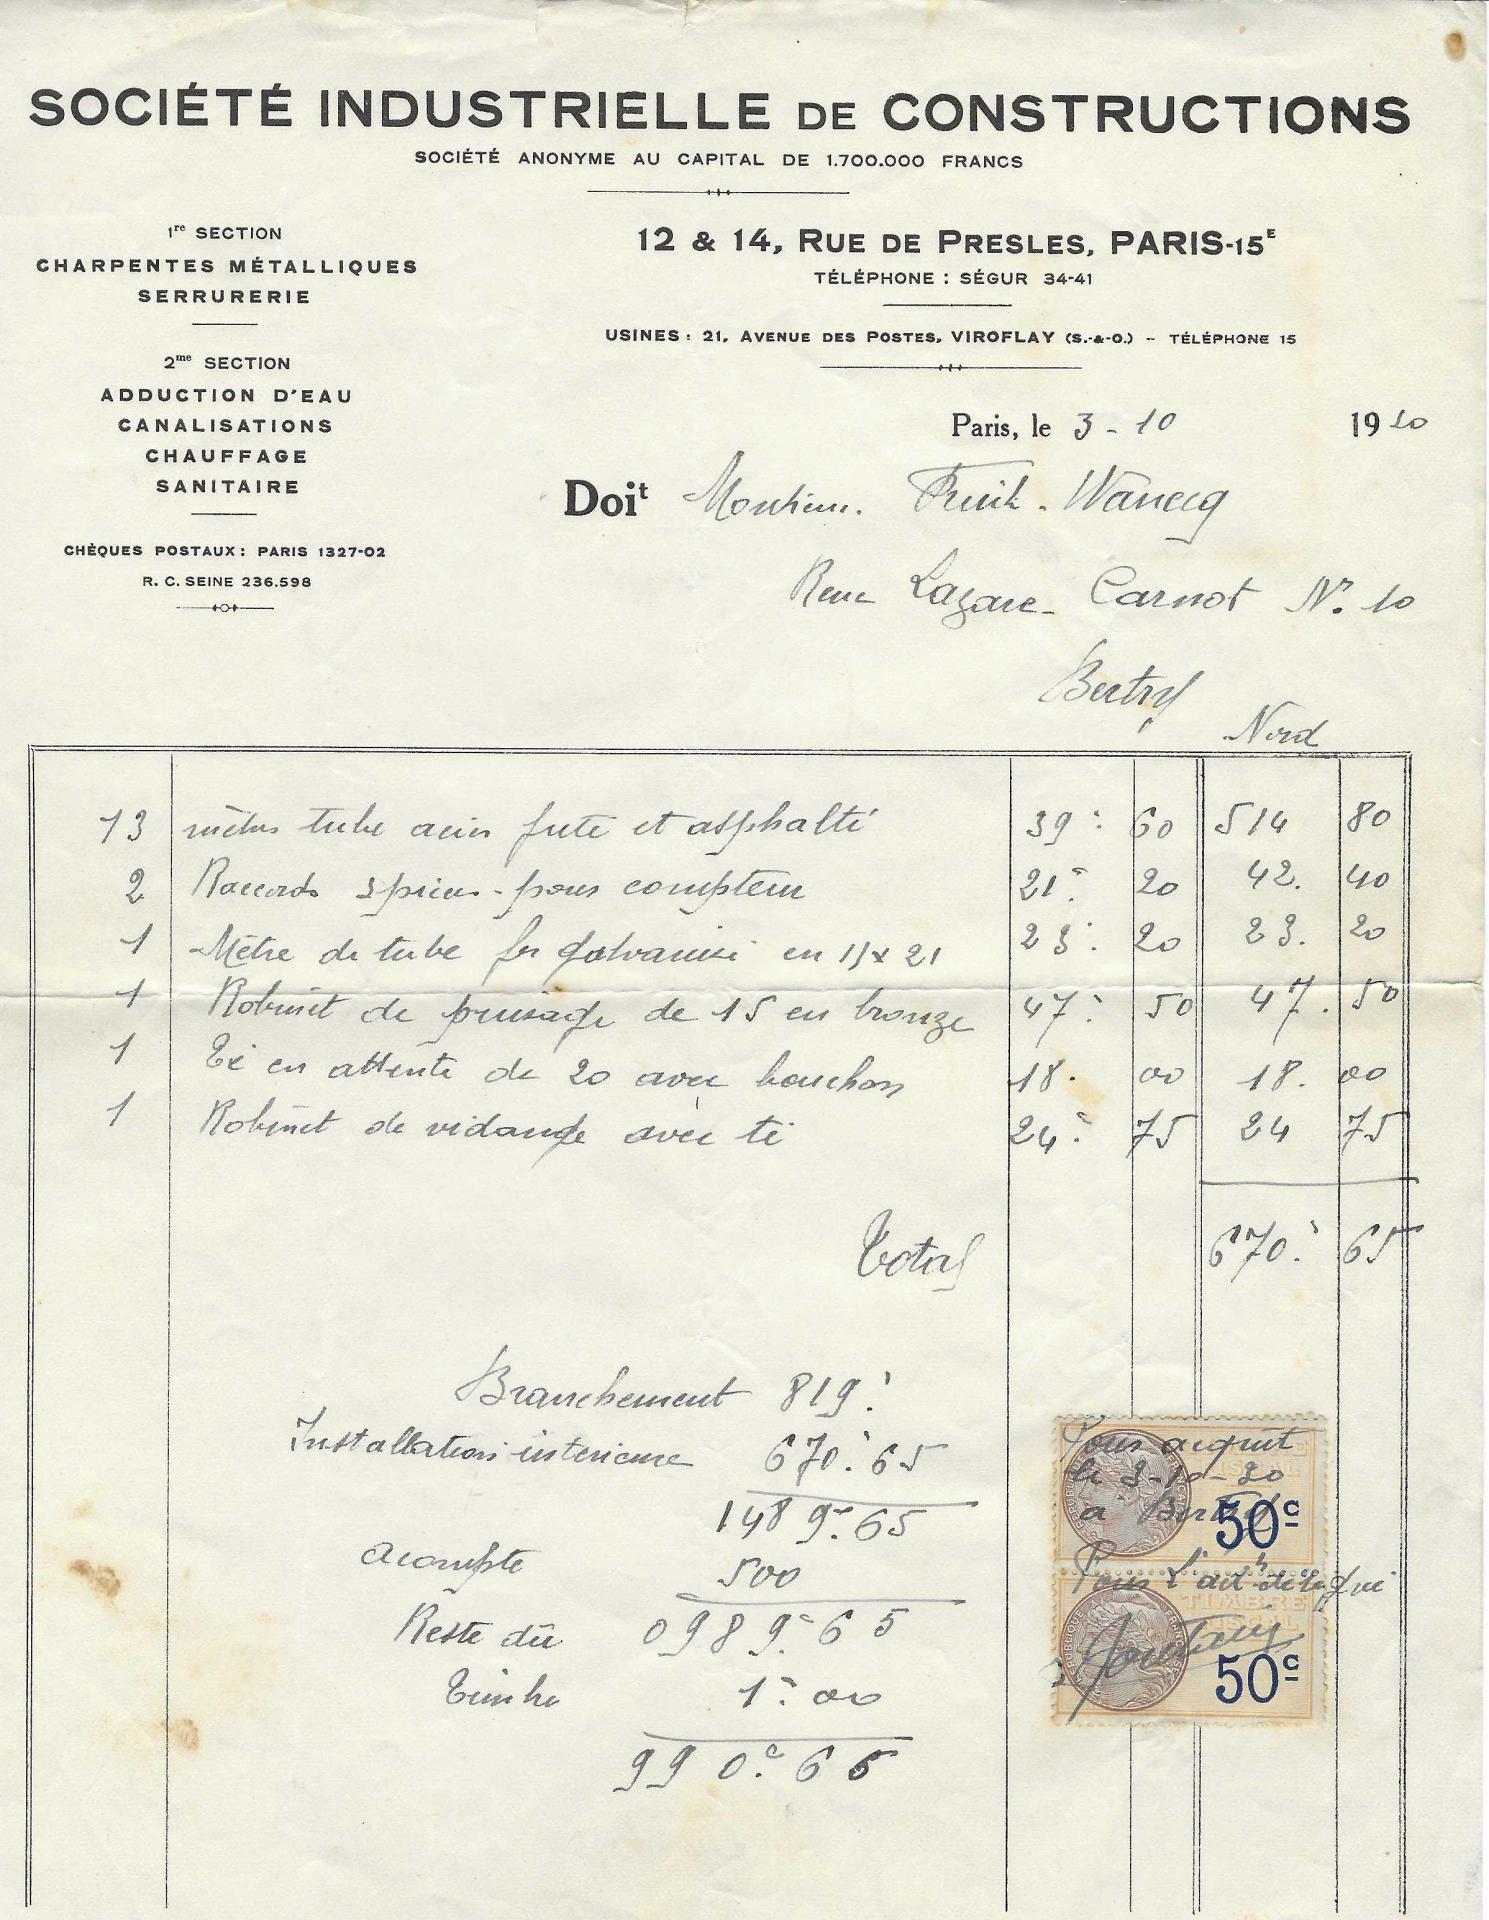 SOCIÉTÉ INDUSTRIELLE DE CONSTRUCTIONS
SOCIÉTÉ ANONYME AU CAPITAL DE 1.700.000 FRANCS
1re SECTION
CHARPENTES MÉTALLIQUES
SERRURERIE
2me SECTION
ADDUCTION D'EAU
CANALISATIONS
CHAUFFAGE
SANITAIRE
CHÈQUES POSTAUX : PARIS 1327-02
R. C. SEINE 236.598
12 & 14, RUE DE PRESLES, PARIS-15E
TÉLÉPHONE : SÉGUR 34-41
USINES : 21, AVENUE DES POSTES, VIROFLAY (S.-&-O.) -- TÉLÉPHONE 15
Paris, le 3-10 19
Doit Monsieur
Rue Lazare-Carnot N°. 10
Bertry
Nord
13 mètres tube acier et asphalté 39 60 514 80
2 Raccords pour compteur 21 20 42. 40
1 Mètre de tube fer galvanisé en 15 x 21 23 20 23. 20
1 Robinet de puisage de 15 en bronze 47 50 47. 50
1 Té en attente de 20 avec bouchon 18. 00 18. 00
1 Robinet de vidange avec té 24 75 24 75
Total 670. 65
Branchement 819.
Installation intérieure 670. 65
1489. 65
acompte 500
Reste dû 0989. 65
Timbre 1. 00
990. 65
Pour acquit
le 3-10-30
a Bertry
50c
Pour l'adt délégué
TIMBRE
FISCAL
50c